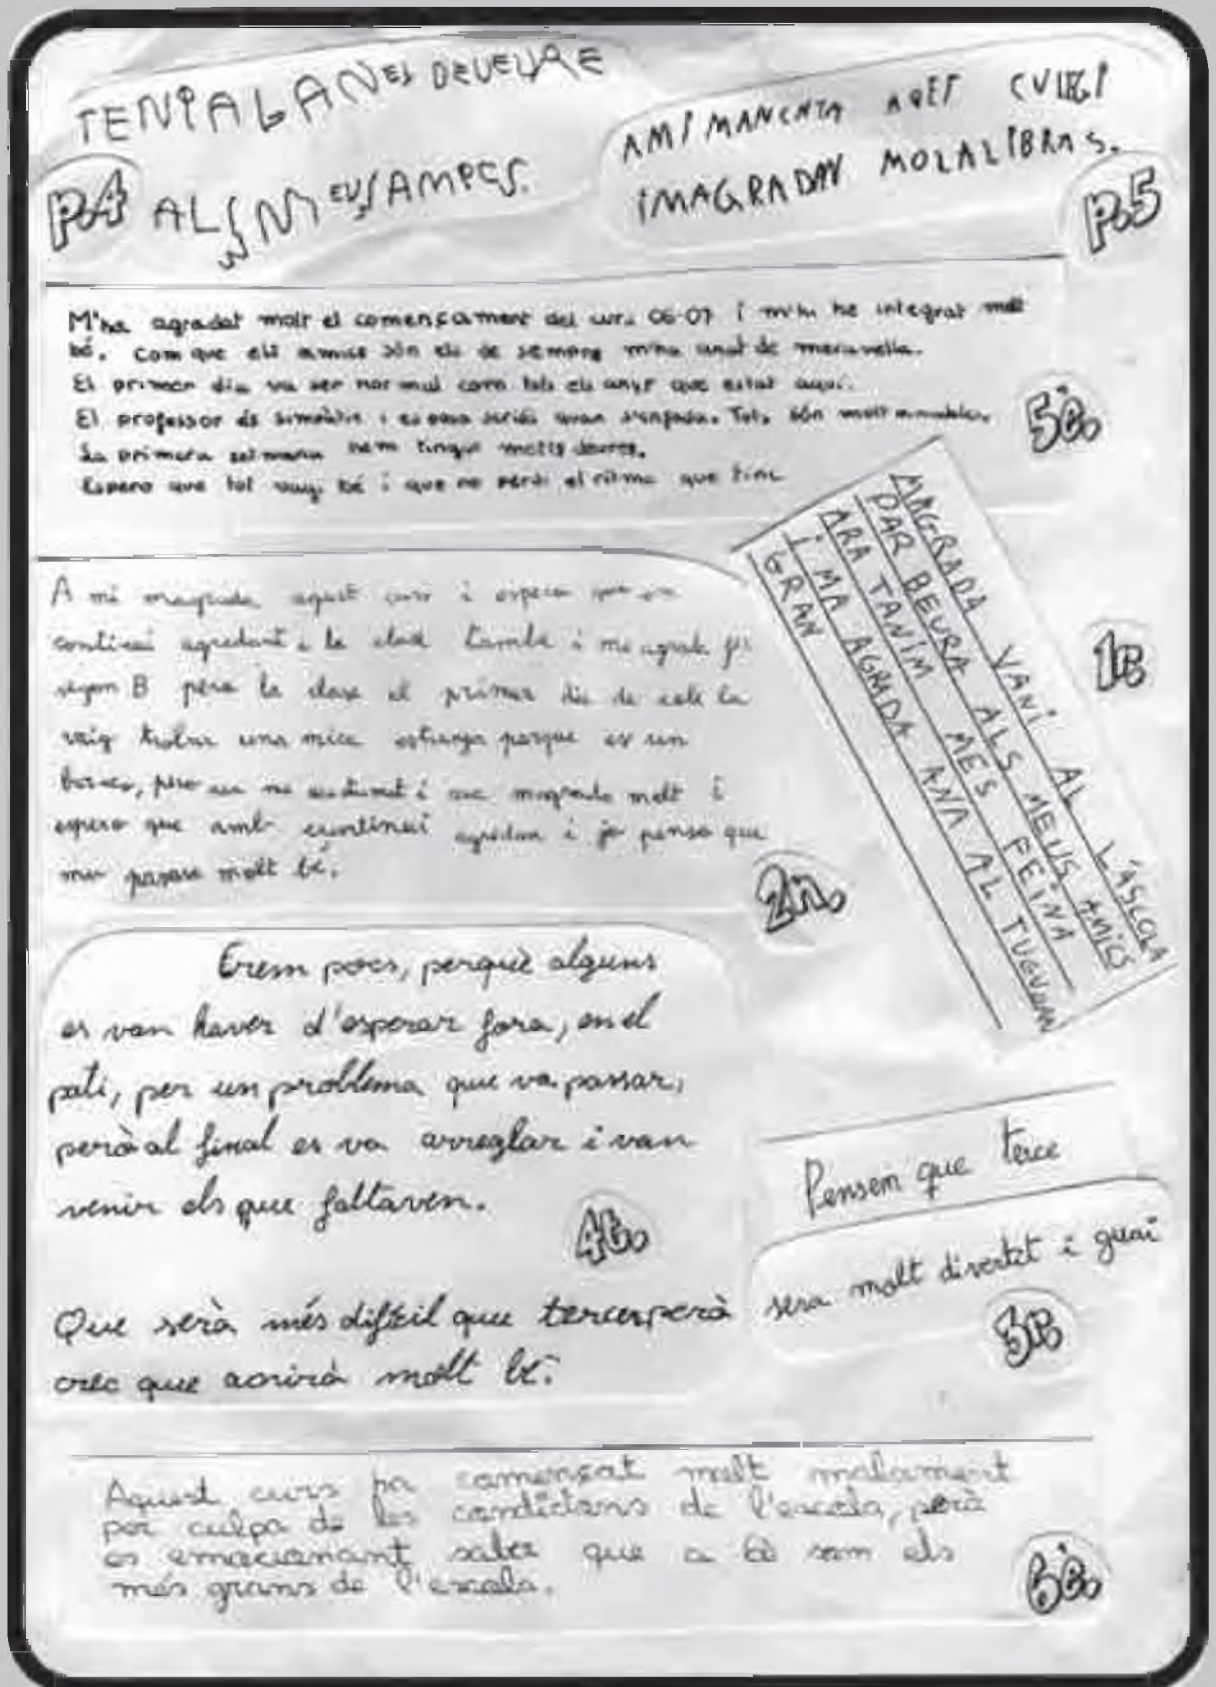 TENIALAN DEVEURE
P.4
ALS MEUS AMPCS.
AMI MANCNTA AQET CULEGI
IMAGRADAV MOLALIBRAS.
P.5
M'ha agradat molt el començament del curs 06-07 i m'hi he integrat molt
bé. Com que els amics són els de sempre m'ha anat de meravella.
El primer dia va ser normal com tots els anys que estat aquí.
El professor és simpàtic i es posa seriós quan s'enfada. Tots són molt amables.
La primera setmana hem tingut molts deures.
Espero que tot vagi bé i que no perdi el ritme que tinc
5è.
MAGRADA VANÍ AL L'ÁSCOLA
DAR BEURA ALS MEUS AMICS
ARA TANIM MES FEINA
I MA AGRADA ANA AL TUGUAN
GRAN
1r.
A mi magrada aquest curs i espero que em
continui agradant i la clase també i me agrada fer
segon B pero la clase el primer dia de cole la
vaig trobar una mica estranya porque es un
pero magrada molt i
espero que amb continui agradan i jo penso que
mu pasare molt bé.
2n.
Erem pocs, perquè alguns
es van haver d'esperar fora, en el
pati, per un problema que va passar,
però al final es va arreglar i van
venir els que faltaven.
4t.
Que serà més difícil que tercer però
crec que anirà molt bé.
Pensem que terce
sera molt divertit i guai
3r.
Aquest curs ha començat molt malament
per culpa de les condicions de l'escola, però
es emocionant saber que a 6è som els
més grans de l'escola.
6è.